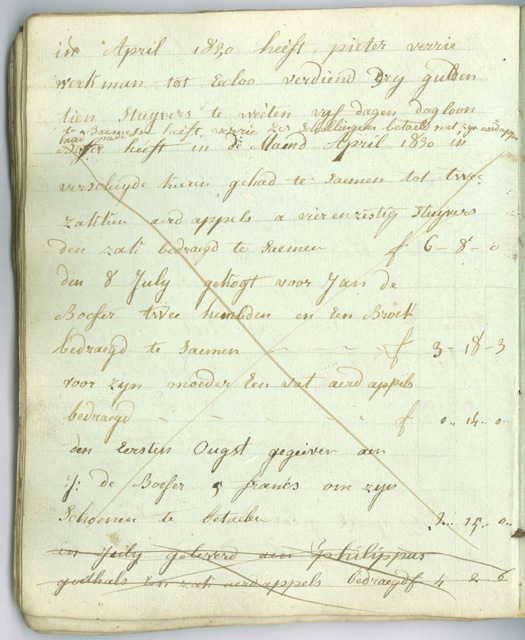 in April 1830 heeft pieter verrie
werkman tot Eecloo verdiend dry gulden
tien stuyvers te wéten vyf dagen dagloon
te saemen heeft verrie zes schellingen betaelt met zyn aerdappels
heeft in de Maend April 1830 in
verscheyde keeren gehad te saemen tot twee
zakken aerdappels a vierenzestig stuyvers
den zak bedraegd te saemen f 6-8-0
den 8 July gekogt voor Jan de
Boeser twee hembden en een Broek
bedraegd te saemen - - f 3-18-3
voor zyn moeder Een vat aerdappels
bedraegd - - - - f 0..14..0
den Eersten Ougst gegeéven aen
J: de Boeser 5 francs om zyn
schoenen te betaelen 2..15..0
in July gelevert aen philippus
godhals Een zak aerdappels bedraegd f 4 2 6